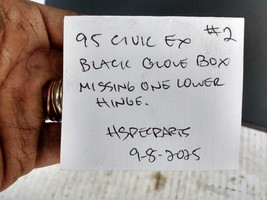 #2
95 CIVIC EX
BLACK GLOVE BOX
MISSING ONE LOWER
HINGE.
HSPECPARTS
9-8-2025